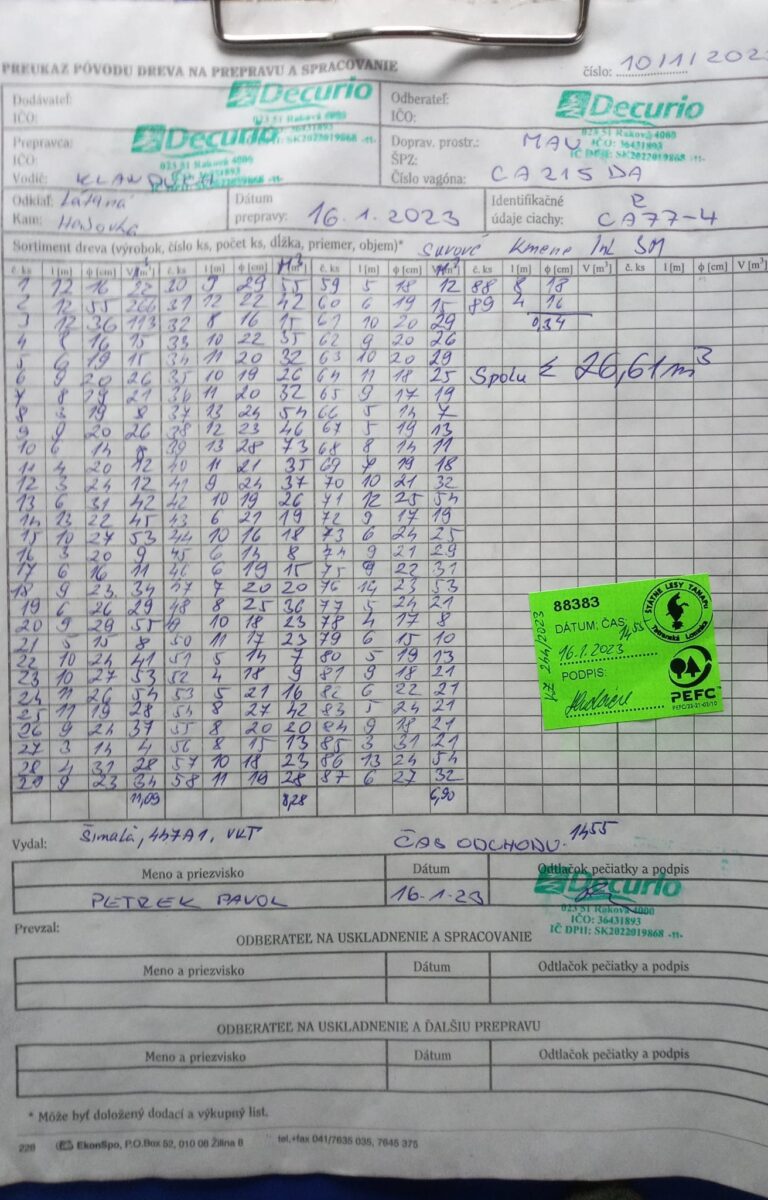 PREUKAZ PÔVODU DREVA NA PREPRAVU A SPRACOVANIE
číslo: 10/1/202
Dodávateľ:
IČO:
Decurio
Odberateľ:
IČO:
Decurio
023 51 Raková 4000
IČO: 36431893
IČ DPH: SK2022019868 -11-
Prepravca:
IČO:
Vodič:
Decurio
023 51 Raková 4000
Doprav. prostr.: MAN
ŠPZ:
Číslo vagóna: CA215DA
Odkiaľ:
Kam:
Dátum
prepravy: 16.1.2023
Identifikačné
údaje ciachy: CA77-4
Sortiment dreva (výrobok, číslo ks, počet ks, dĺžka, priemer, objem)* Surové Kmene SM
č. ks l [m] ϕ [cm] V [m³] č. ks l [m] ϕ [cm] č. ks l [m] ϕ [cm] č. ks l [m] ϕ [cm] V [m³] č. ks l [m] ϕ [cm] V [m³]
1 12 16 22 30 9 29 55 59 5 18 12 88 8 18
2 12 55 266 31 12 22 42 60 6 19 15 89 4 16
3 12 36 113 32 8 16 15 61 10 20 29 0,34
4 8 16 15 33 10 22 35 62 9 20 26
5 6 19 15 34 11 20 32 63 10 20 29
6 9 20 26 35 10 19 26 64 11 18 25 Spolu 26,61m³
7 8 19 21 36 11 20 32 65 9 17 19
8 3 19 8 37 13 24 54 66 5 14 7
9 9 20 26 38 12 23 46 67 5 19 13
10 6 14 8 39 13 28 73 68 8 14 11
11 4 20 12 40 11 21 35 69 7 19 18
12 3 24 12 41 9 24 37 70 10 21 32
13 6 31 42 42 10 19 26 71 12 25 54
14 13 22 45 43 6 21 19 72 9 17 19
15 10 27 53 44 10 16 18 73 6 24 25
16 3 20 9 45 6 14 8 74 9 21 29
17 6 16 11 46 6 19 15 75 9 22 31
18 9 23 34 47 7 20 20 76 14 23 53
19 6 26 29 48 8 25 36 77 5 24 21
20 9 29 55 49 10 18 23 78 4 17 8
21 5 15 8 50 11 17 23 79 6 15 10
22 10 24 41 51 5 14 7 80 5 19 13
23 10 27 53 52 4 18 9 81 9 18 21
24 11 26 54 53 5 21 16 82 6 22 21
25 11 19 28 54 8 27 42 83 5 24 21
26 9 24 37 55 8 20 20 84 9 18 21
27 3 14 4 56 8 15 13 85 3 31 21
28 4 31 28 57 10 18 23 86 13 24 54
29 9 23 34 58 11 19 28 87 6 27 32
11,09 8,28 6,90
88383
DÁTUM; ČAS: 1455
16.1.2023
PODPIS:
ŠTÁTNE LESY TANAPU
Tatranská Lomnica
PEFC
Vydal: Šimalá, 447A1, VKT
ČAS ODCHODU. 1455
Meno a priezvisko Dátum Odtlačok pečiatky a podpis
PETREK PAVOL 16.1.23
Decurio
023 51 Raková 4000
IČO: 36431893
IČ DPH: SK2022019868 -11-
Prevzal:
ODBERATEĽ NA USKLADNENIE A SPRACOVANIE
Meno a priezvisko Dátum Odtlačok pečiatky a podpis
ODBERATEĽ NA USKLADNENIE A ĎALŠIU PREPRAVU
Meno a priezvisko Dátum Odtlačok pečiatky a podpis
* Môže byť doložený dodací a výkupný list.
226 EkonSpo, P.O.Box 52, 010 08 Žilina 8 tel.+fax 041/7635 035, 7645 375